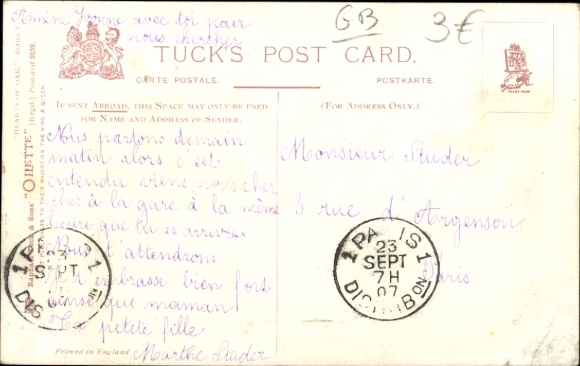 Ramène Yvonne avec toi pour
nous chercher
GB
3€
TUCK'S POST CARD.
CARTE POSTALE.
POSTKARTE.
IF SENT ABROAD, THIS SPACE MAY ONLY BE USED
FOR NAME AND ADDRESS OF SENDER.
(FOR ADDRESS ONLY.)
"OILETTE" [Regd.] Postcard
Nous partons demain
matin alors c'est
entendu viens nous cher
cher à la gare à la même
heure que tu es arrivée
Nous t'attendrons
Je t'embrasse bien fort
ainsi que maman
Ta petite fille
Marthe Studer
Monsieur Studer
3 rue d'Argenson
Paris
1 PARIS 1
23
SEPT
DISTRIB
1 PARIS 1
23
SEPT
7H
07
DISTRIBON
Printed in England